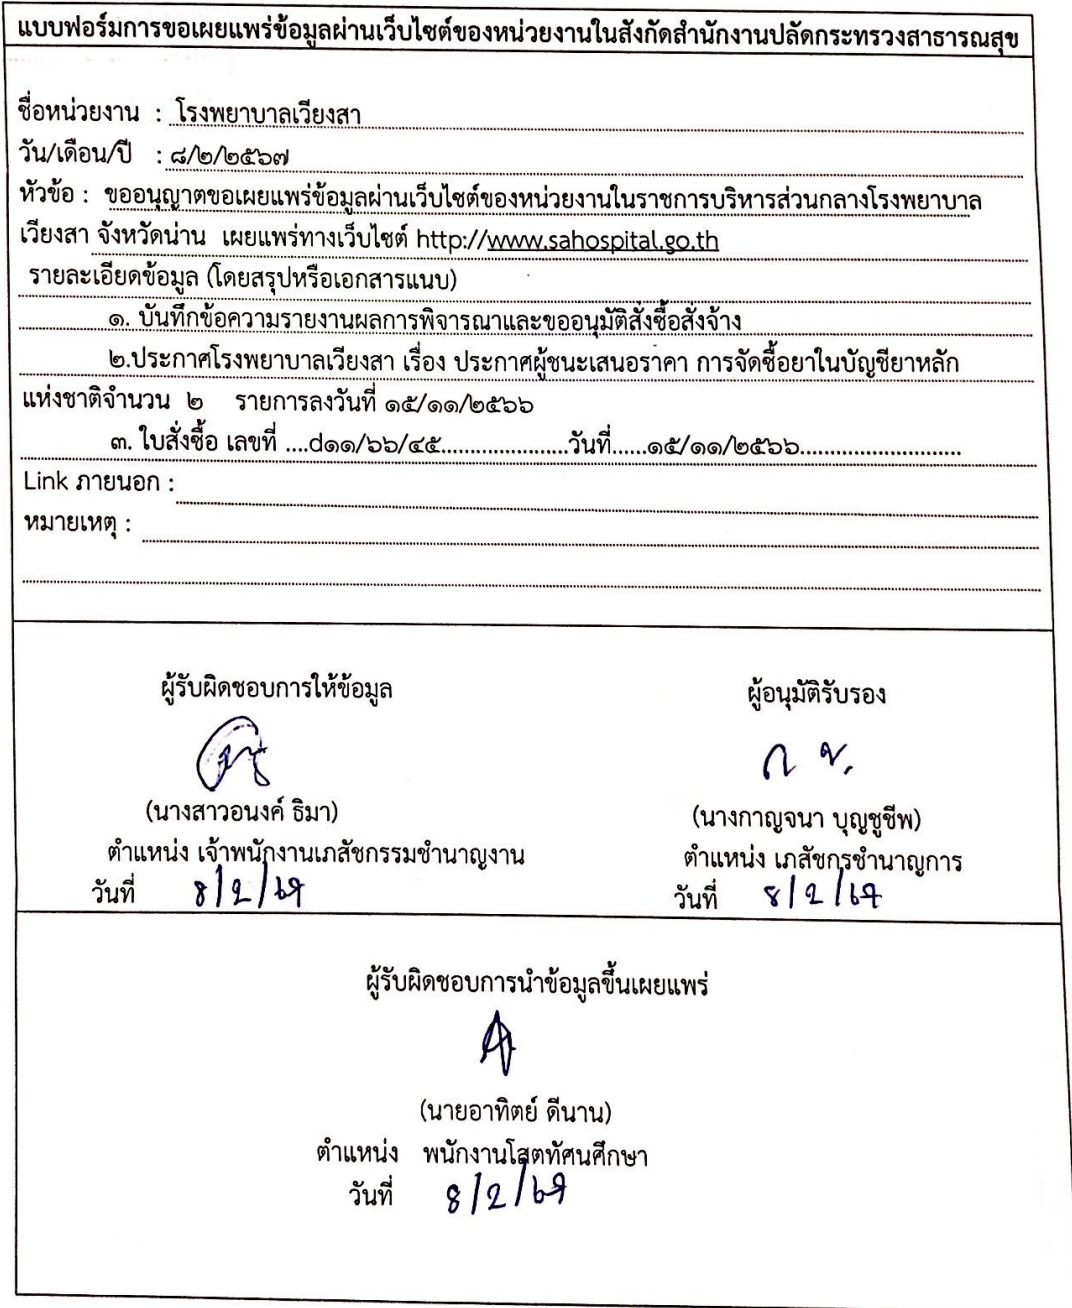 แบบฟอร์มการขอเผยแพร่ข้อมูลผ่านเว็บไซต์ของหน่วยงานในสังกัดสำนักงานปลัดกระทรวงสาธารณสุข
ชื่อหน่วยงาน : โรงพยาบาลเวียงสา
วัน/เดือน/ปี : ๘/๒/๒๕๖๗
หัวข้อ : ขออนุญาตขอเผยแพร่ข้อมูลผ่านเว็บไซต์ของหน่วยงานในราชการบริหารส่วนกลางโรงพยาบาล
เวียงสา จังหวัดน่าน เผยแพร่ทางเว็บไซต์ http://www.sahospital.go.th
รายละเอียดข้อมูล (โดยสรุปหรือเอกสารแนบ)
๑. บันทึกข้อความรายงานผลการพิจารณาและขออนุมัติสั่งซื้อสั่งจ้าง
๒.ประกาศโรงพยาบาลเวียงสา เรื่อง ประกาศผู้ชนะเสนอราคา การจัดซื้อยาในบัญชียาหลัก
แห่งชาติจำนวน ๒ รายการลงวันที่ ๑๕/๑๑/๒๕๖๖
๓. ใบสั่งซื้อ เลขที่ ....d๑๑/๖๖/๔๕.....................วันที่......๑๕/๑๑/๒๕๖๖...........................
Link ภายนอก :
หมายเหตุ :
ผู้รับผิดชอบการให้ข้อมูล
(นางสาวอนงค์ ธิมา)
ตำแหน่ง เจ้าพนักงานเภสัชกรรมชำนาญงาน
วันที่ 8/2/67
ผู้อนุมัติรับรอง
(นางกาญจนา บุญชูชีพ)
ตำแหน่ง เภสัชกรชำนาญการ
วันที่ 8/2/67
ผู้รับผิดชอบการนำข้อมูลขึ้นเผยแพร่
(นายอาทิตย์ ดีนาน)
ตำแหน่ง พนักงานโสตทัศนศึกษา
วันที่ 8/2/67